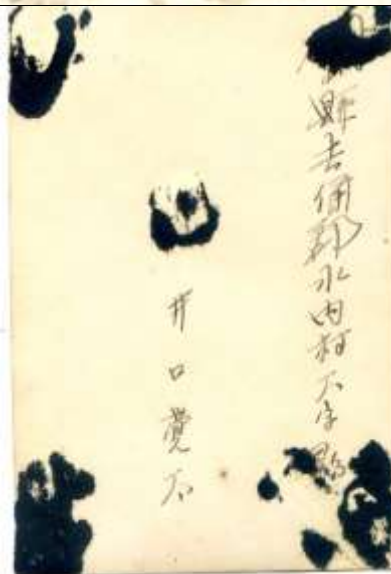 縣吉備郡水内村大字
井口覺